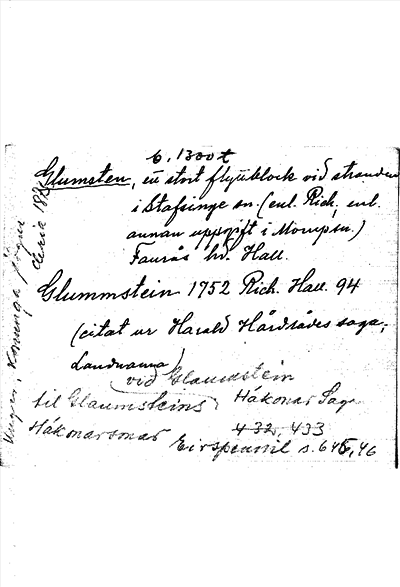 b. 1300t
Glumsten, ett stort flyttblock vid stranden
i Stafsinge sn. (enl. Rich, enl.
annan uppgift i Morups sn.)
Faurås hd. Hall.
Glummstein 1752 Rich. Hall. 94
(citat ur Harald Hårdrådes saga,
Landnama)
vid Glaumstein
til Glaumsteins Hákonar Saga
Hákonarsonar 432, 433
Eirspennil s. 645, 46
Unger, Konunga sögur